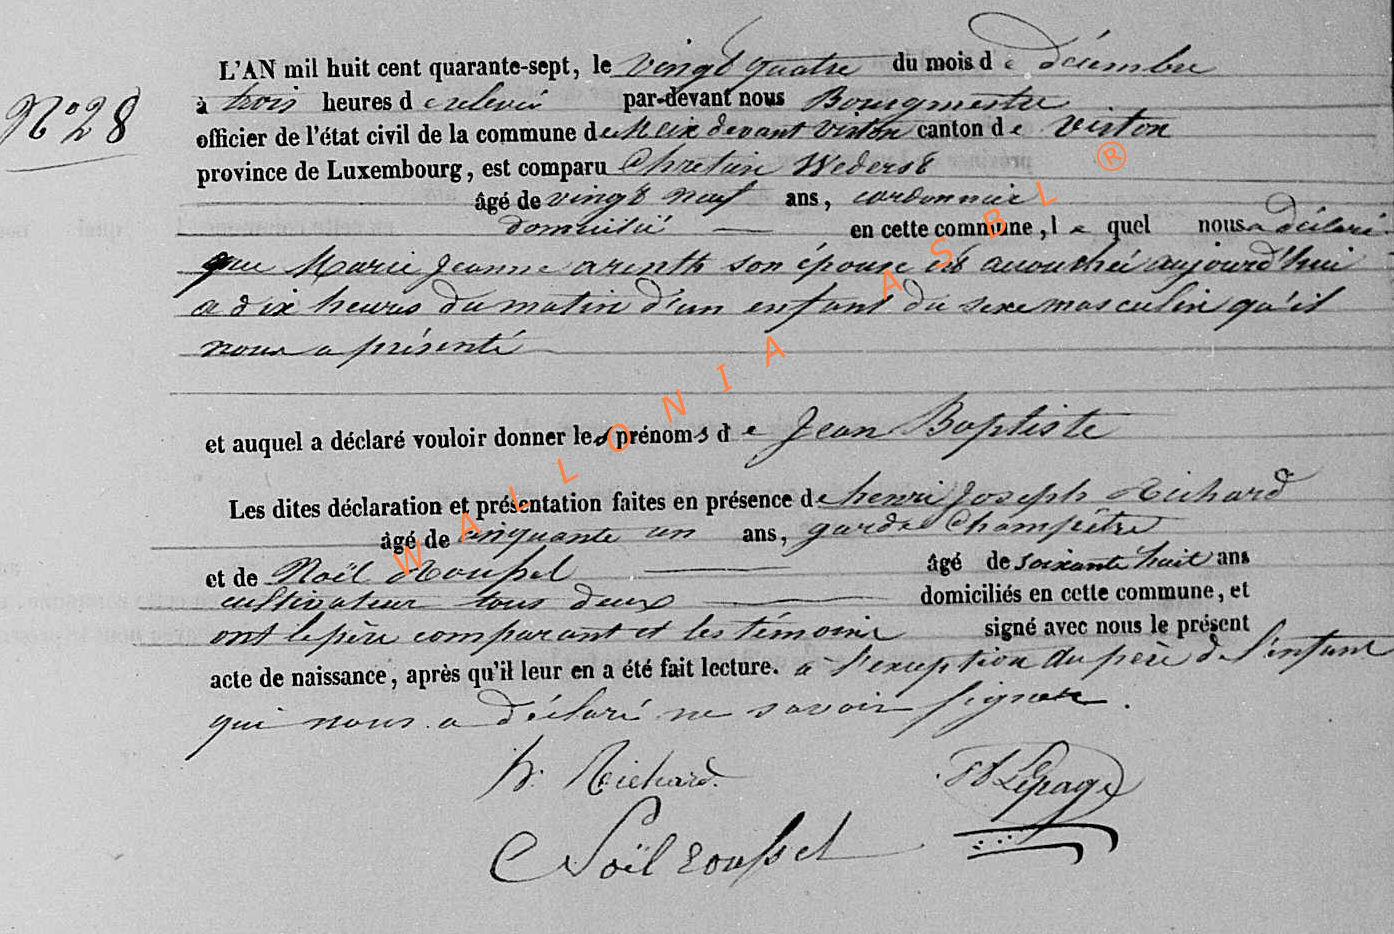 L'AN mil huit cent quarante-sept, le vingt quatre du mois de décembre
N° 28
à trois heures de relevée par-devant nous Bourgmestre
officier de l'état civil de la commune de Meix devant virton canton de virton
province de Luxembourg, est comparu Chretien Wederst
âgé de vingt neuf ans, cordonnier
domicilié en cette commune, le quel nous a déclaré
que Marie Jeanne arenth son épouse est accouchée aujourd'hui
a dix heures du matin d'un enfant du sexe masculin qu'il
nous a présenté
et auquel a déclaré vouloir donner les prénoms de Jean Baptiste
Les dites déclaration et présentation faites en présence de henri Joseph Richard
âgé de cinquante un ans, garde Champêtre
et de Noël Roussel âgé de soixante huit ans
cultivateur tous deux domiciliés en cette commune, et
ont le père comparant et les témoins signé avec nous le présent
acte de naissance, après qu'il leur en a été fait lecture. a l'exception du père de l'enfant
qui nous a déclaré ne savoir signer.
h. Richard. Lepage
Noël roussel
WALLONIA ASBL ®